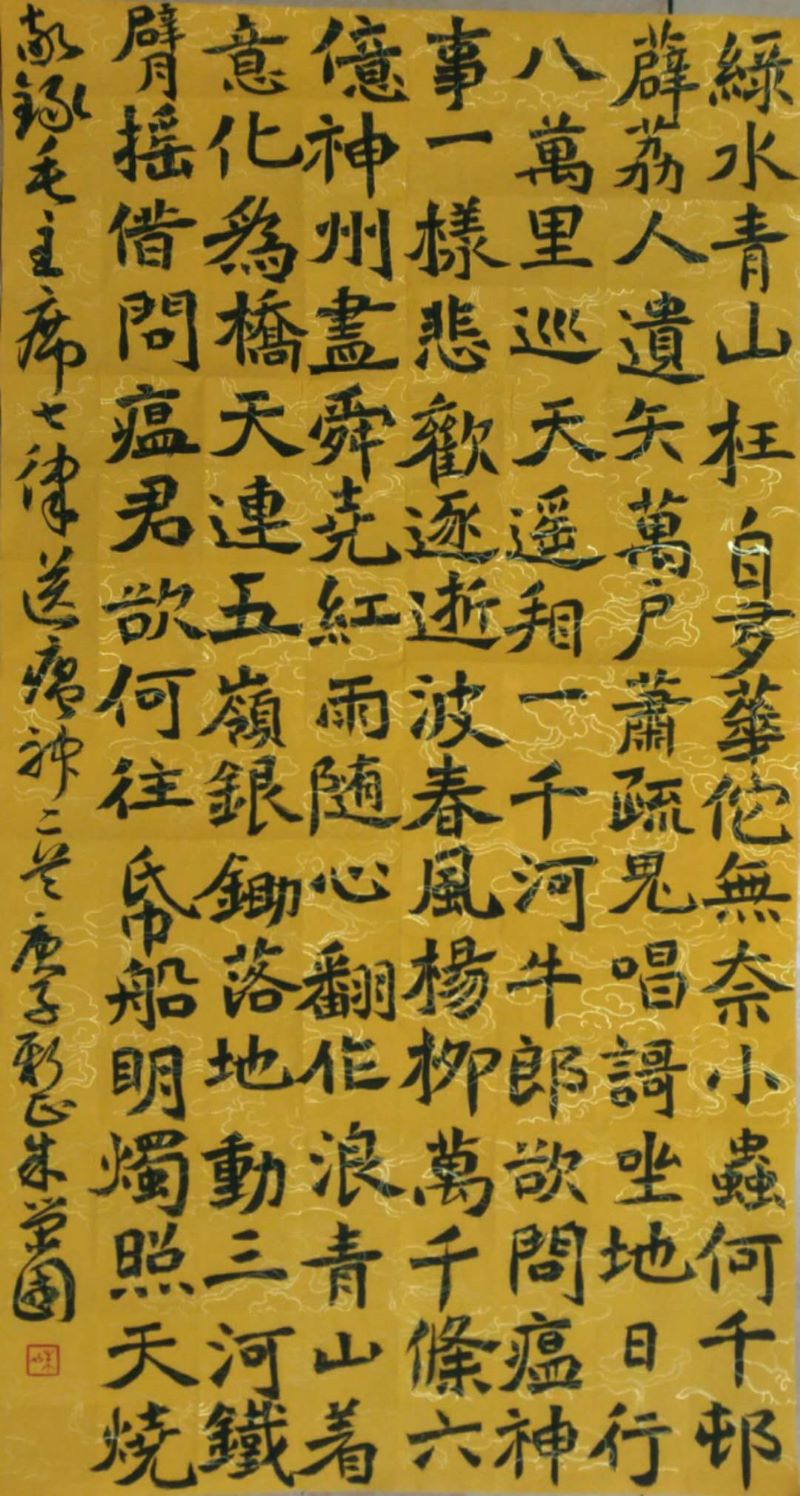 綠水青山枉自多華佗無奈小蟲何千邨
薜荔人遺矢萬戶蕭疏鬼唱謌坐地日行
八萬里巡天遥看一千河牛郎欲問瘟神
事一樣悲歡逐逝波春風楊柳萬千條六
億神州盡舜堯紅雨随心翻作浪青山着
意化為橋天連五嶺銀鋤落地動三河鐵
臂摇借問瘟君欲何往帋船明燭照天燒
敬錄毛主席七律送瘟神二首庚子新正朱